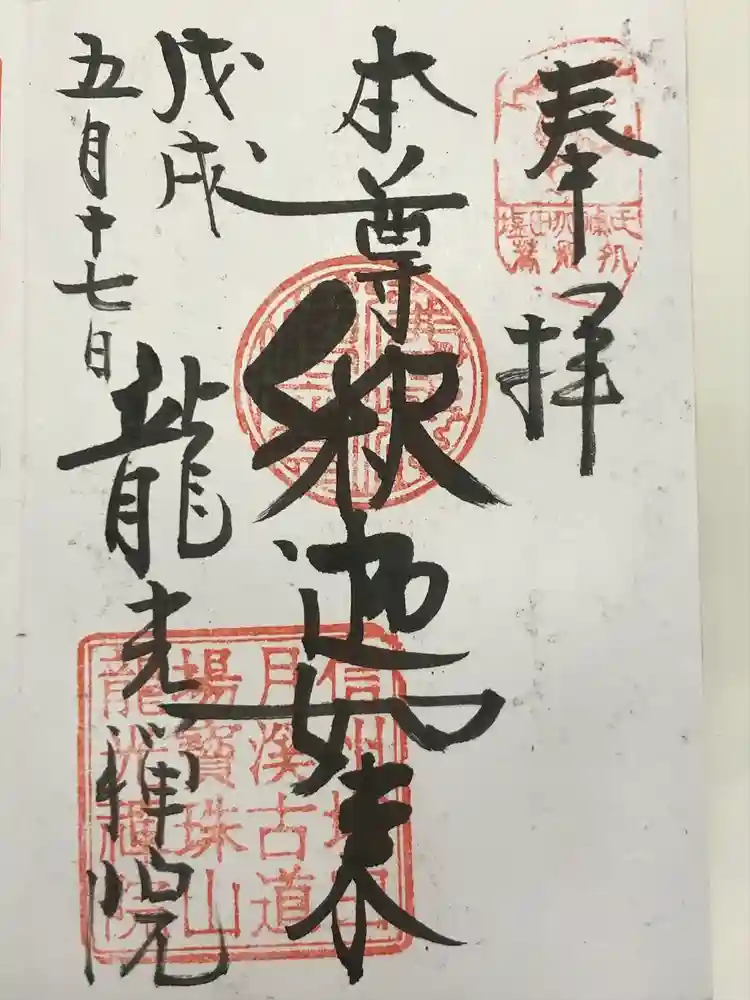 奉拝
本尊
釈迦如来
戊戌
五月十七日
龍光禅院
信州塩田
月溪古道
場寶珠山
龍光禅院